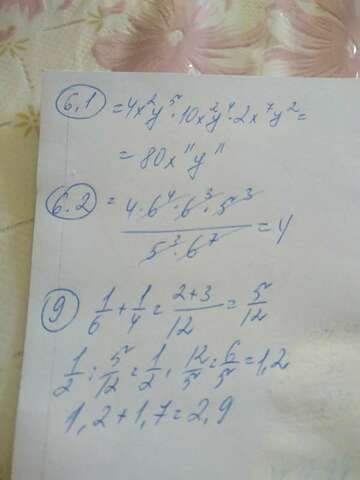 6.1 = 4x²y⁵ · 10x²y⁴ · 2x⁷y² =
= 80x¹¹y¹¹
6.2 = (4 · 6⁴ · 6³ · 5³) / (5³ · 6⁷) = 4
9 1/6 + 1/4 = (2+3)/12 = 5/12
1/2 : 5/12 = 1/2 · 12/5 = 6/5 = 1,2
1,2 + 1,7 = 2,9